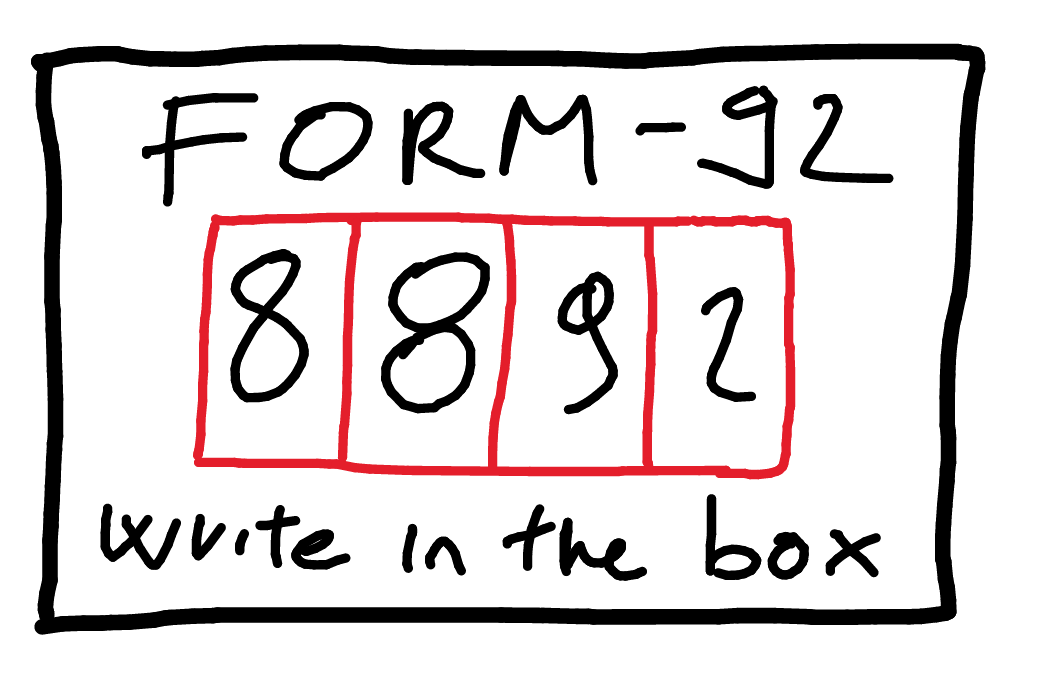 FORM-92
8892
write in the box